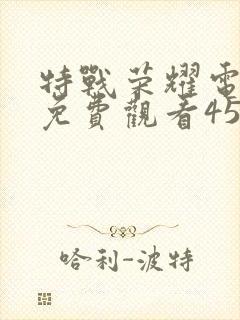 特戰荣耀電
免費觀看45
哈利-波特